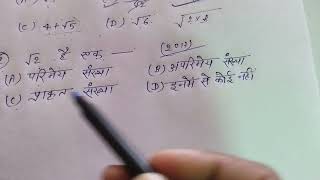 (C) 4+√5 (D) √6
√2 है एक — (2017)
(A) परिमेय संख्या (B) अपरिमेय संख्या
(C) प्राकृत संख्या (D) इनमे से कोई नहीं